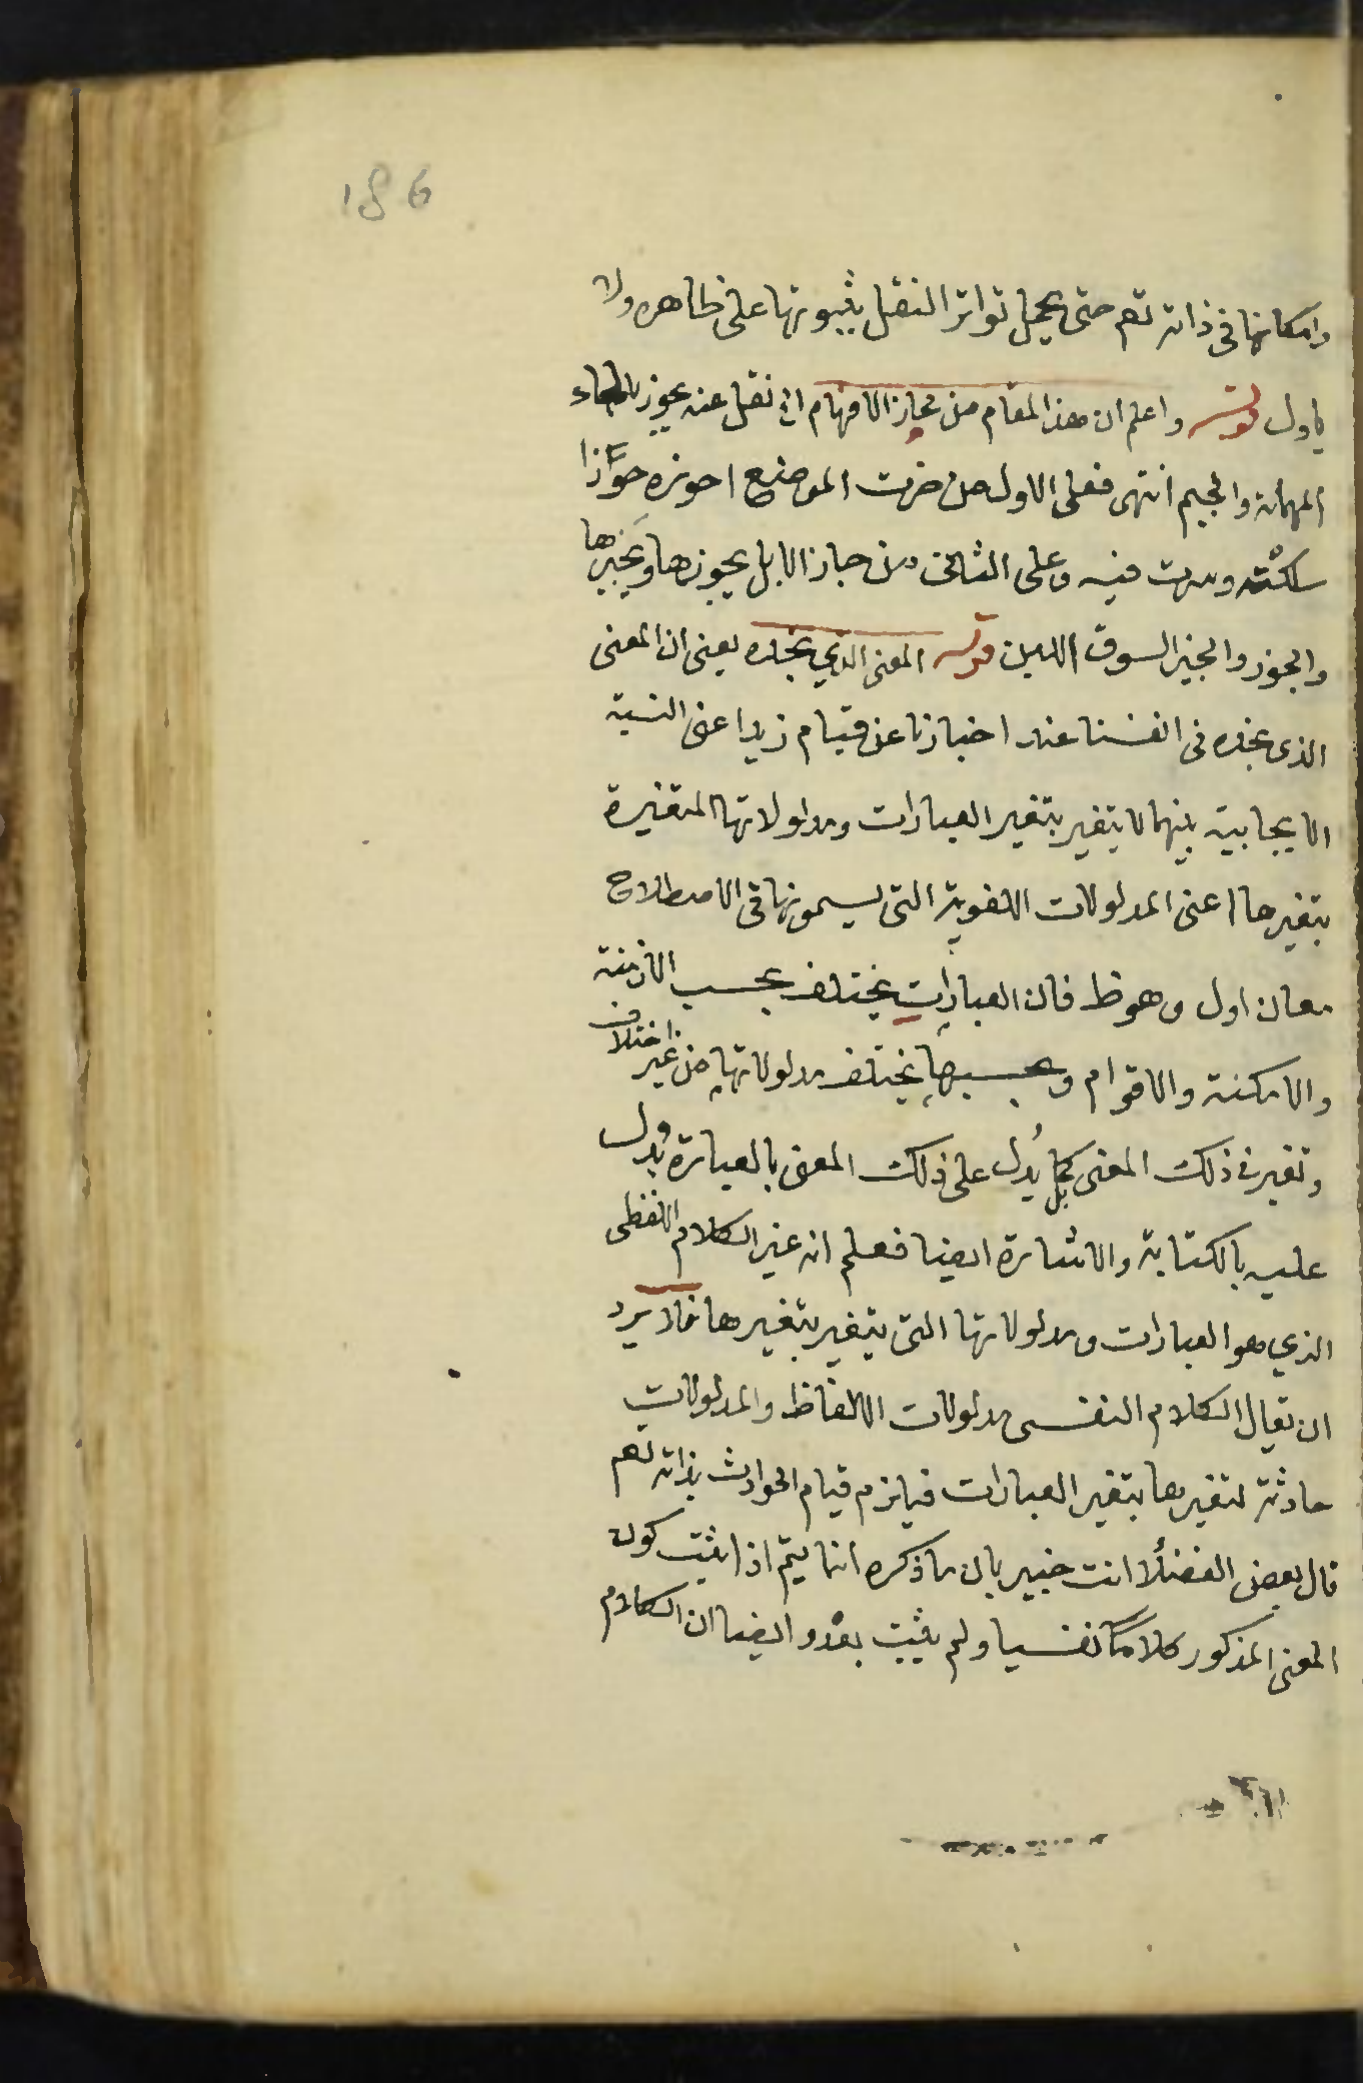 186
وامكانها في ذاته تعم حتى يحمل تواتر النقل بثبوتها على ظاهره ولا
ياول قوله واعلم ان هذا المقام من مجاز الافهام الخ نقل عنه يجوز بالحاء
المهملة والجيم انتهى فعلى الاول من حزت الموضع احوزه حوزا
سلكته وسرت فيه وعلى الثاني من حاز الابل يحوزها ويحيزها
والحوز والحيز السوق اللين قوله المعنى الذي نجده يعنى ان المعنى
الذى نجده فى انفسنا عند اخبارنا عن قيام زيد اعنى النسبة
الايجابية بينهما لا يتغير بتغير العبارات ومدلولاتها المتغيرة
بتغيرها اعنى المدلولات اللغوية التى يسمونها فى الاصطلاح
معان اول وهو ظ فان العبارات يختلف بحسب الازمنة
والامكنة والاقوام وبحسبها يختلف مدلولاتها من غير اختلاف
وتغير فى ذلك المعنى بل كما يُدل على ذلك المعنى بالعبارة يدل
عليه بالكتابة والاشارة ايضا فعلم انه غير الكلام اللفظى
الذي هو العبارات ومدلولاتها التى يتغير بتغيرها فلا يرد
ان يقال الكلام النفسى مدلولات الالفاظ والمدلولات
حادثة لتغيرها بتغير العبارات فيلزم قيام الحوادث بذاته تعم
قال بعض الفضلا انت خبير بان ما ذكره انما يتم اذا يثبت كون
المعنى المذكور كلامًا نفسيا ولم يثبت بعد وايضا ان الكلام